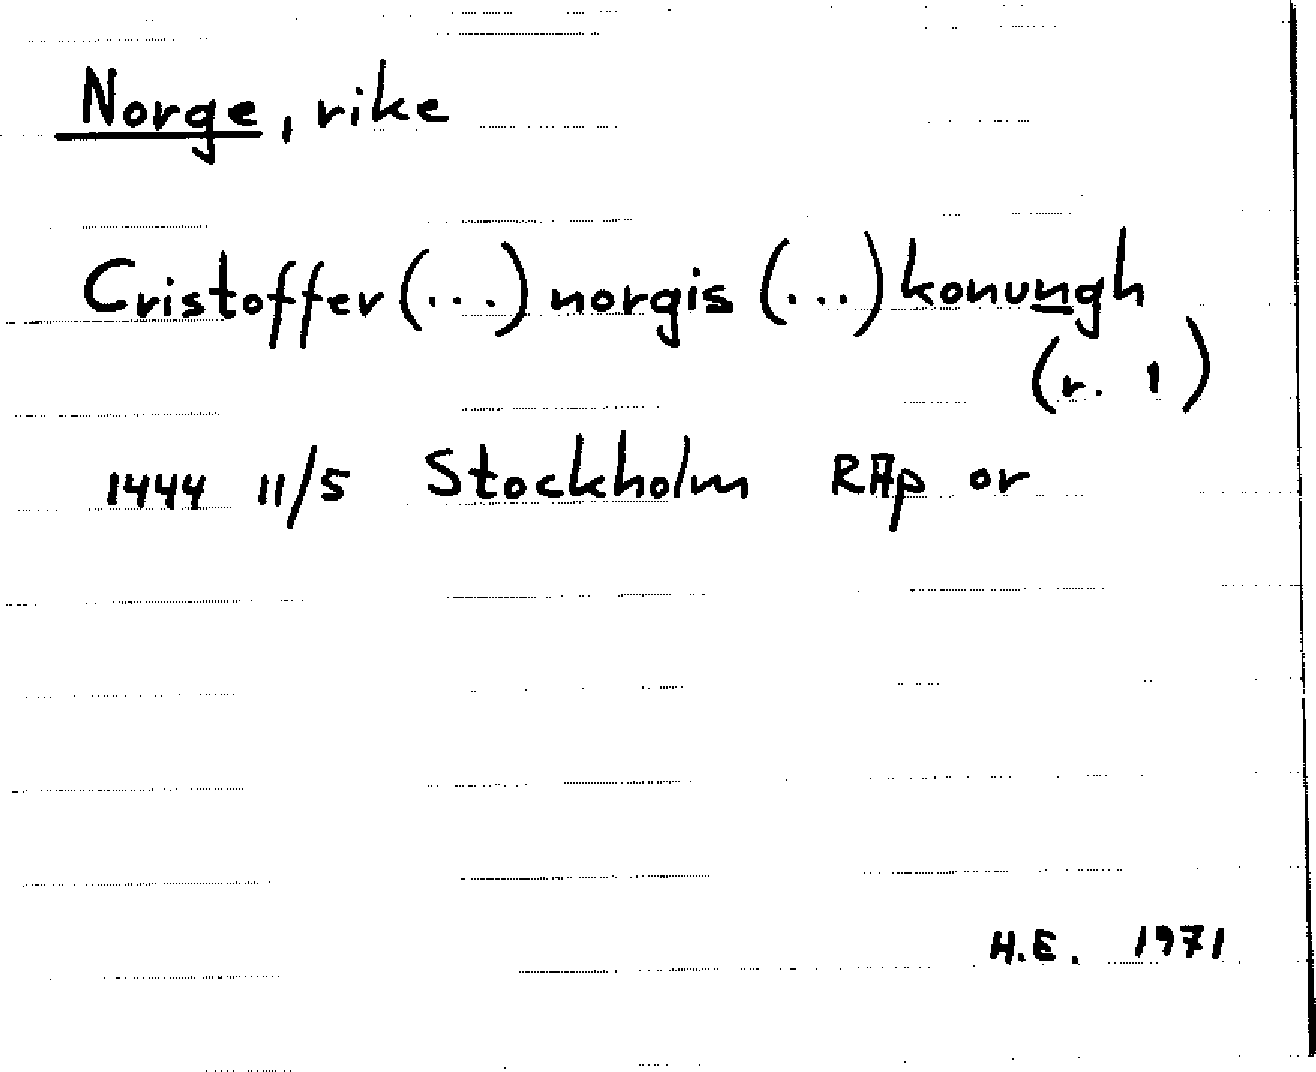 Norge, rike
Cristoffer (...) norgis (...) konungh
(r. 1)
1444 11/5 Stockholm RAp or
H.E. 1971